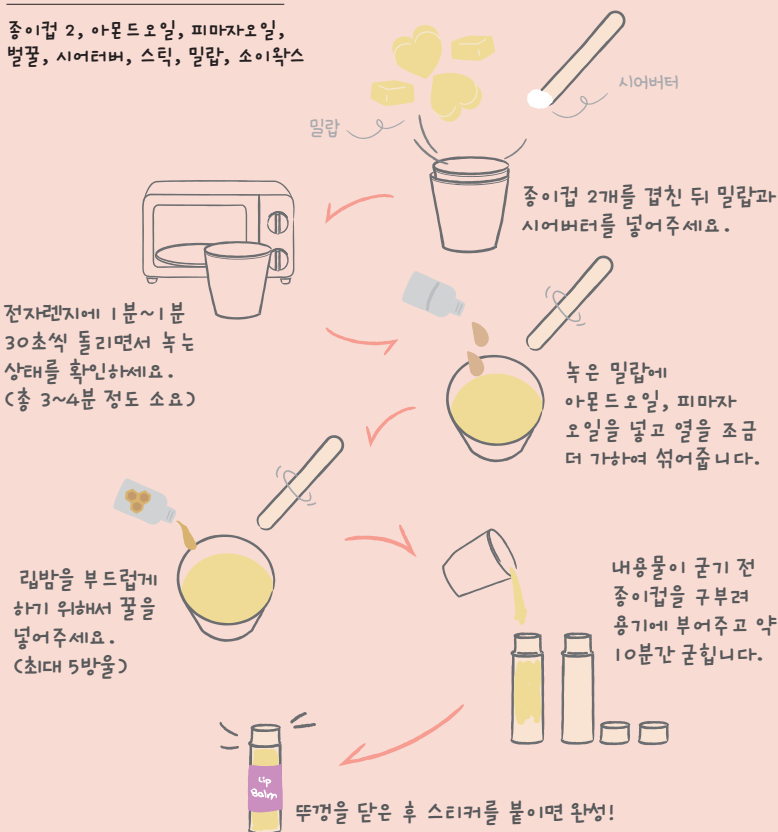 종이컵 2, 아몬드오일, 피마자오일,
벌꿀, 시어터버, 스틱, 밀랍, 소이왁스
시어버터
밀랍
종이컵 2개를 겹친 뒤 밀랍과
시어버터를 넣어주세요.
전자렌지에 1분~1분
30초씩 돌리면서 녹는
상태를 확인하세요.
(총 3~4분 정도 소요)
녹은 밀랍에
아몬드오일, 피마자
오일을 넣고 열을 조금
더 가하여 섞어줍니다.
립밤을 부드럽게
하기 위해서 꿀을
넣어주세요.
(최대 5방울)
내용물이 굳기 전
종이컵을 구부려
용기에 부어주고 약
10분간 굳힙니다.
Lip
Balm
뚜껑을 닫은 후 스티커를 붙이면 완성!